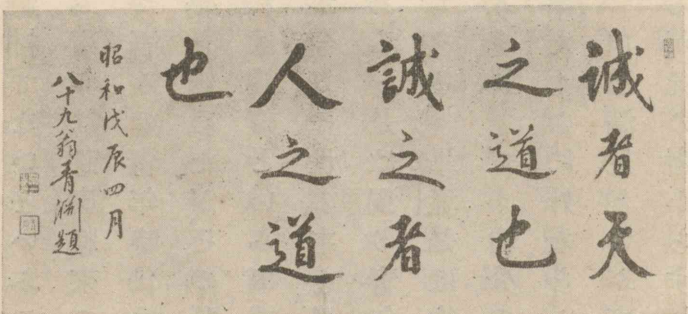 誠者天
之道也
誠之者
人之道
也
昭和戊辰四月
八十九翁青淵題